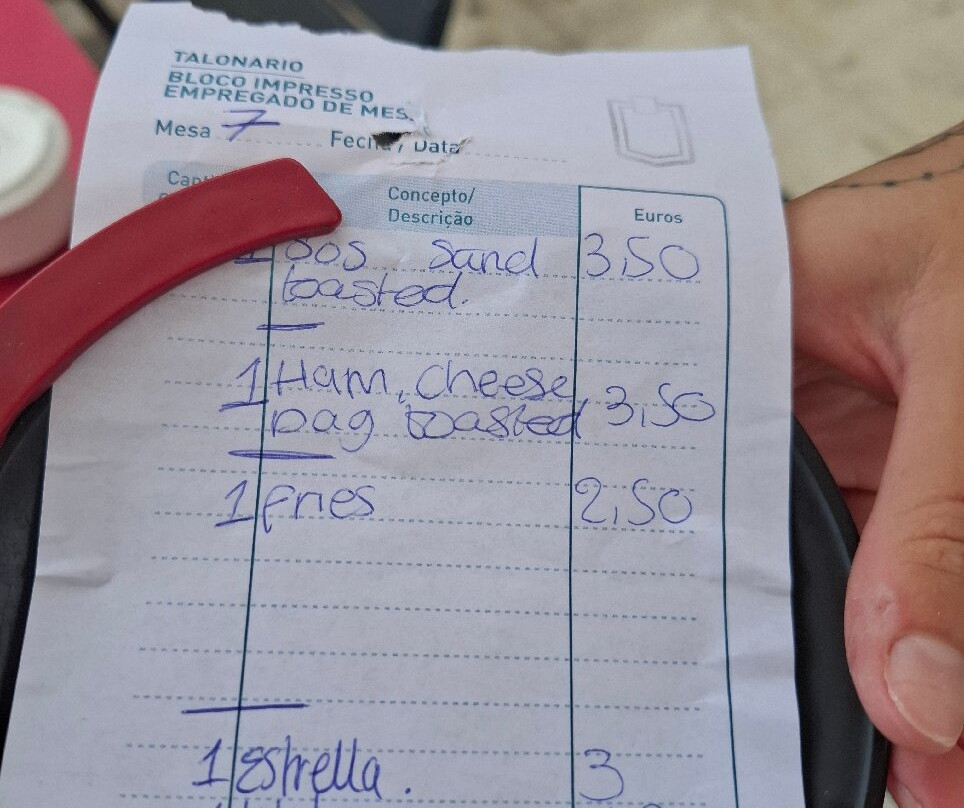 TALONARIO
BLOCO IMPRESSO
EMPREGADO DE MES
Mesa 7 Fecha / Data
Concepto/
Descrição
Euros
1 sos sand 3,50
toasted.
1 Ham, cheese 3,50
bag toasted
1 fries 2,50
1 Estrella. 3